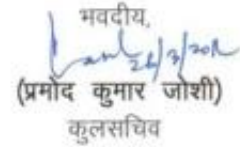 भवदीय,
(प्रमोद कुमार जोशी)
कुलसचिव